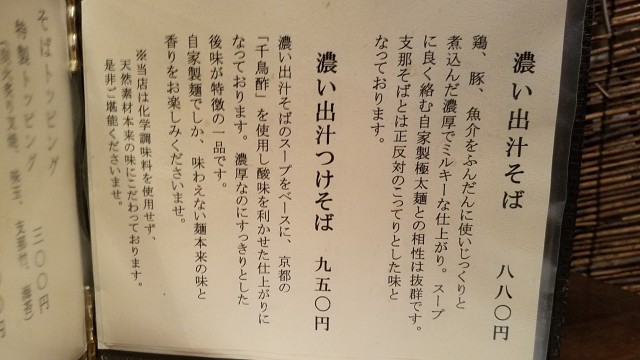 濃い出汁そば 八八〇円
鶏、豚、魚介をふんだんに使いじっくりと
煮込んだ濃厚でミルキーな仕上がり。スープ
に良く絡む自家製極太麺との相性は抜群です。
支那そばとは正反対のこってりとした味と
なっております。
濃い出汁つけそば 九五〇円
濃い出汁そばのスープをベースに、京都の
「千鳥酢」を使用し酸味を利かせた仕上がりに
なっております。濃厚なのにすっきりとした
後味が特徴の一品です。
自家製麺でしか、味わえない麺本来の味と
香りをお楽しみくださいませ。
※当店は化学調味料を使用せず、
天然素材本来の味にこだわっております。
是非ご堪能くださいませ。
そばトッピング
特製トッピング 三〇〇円